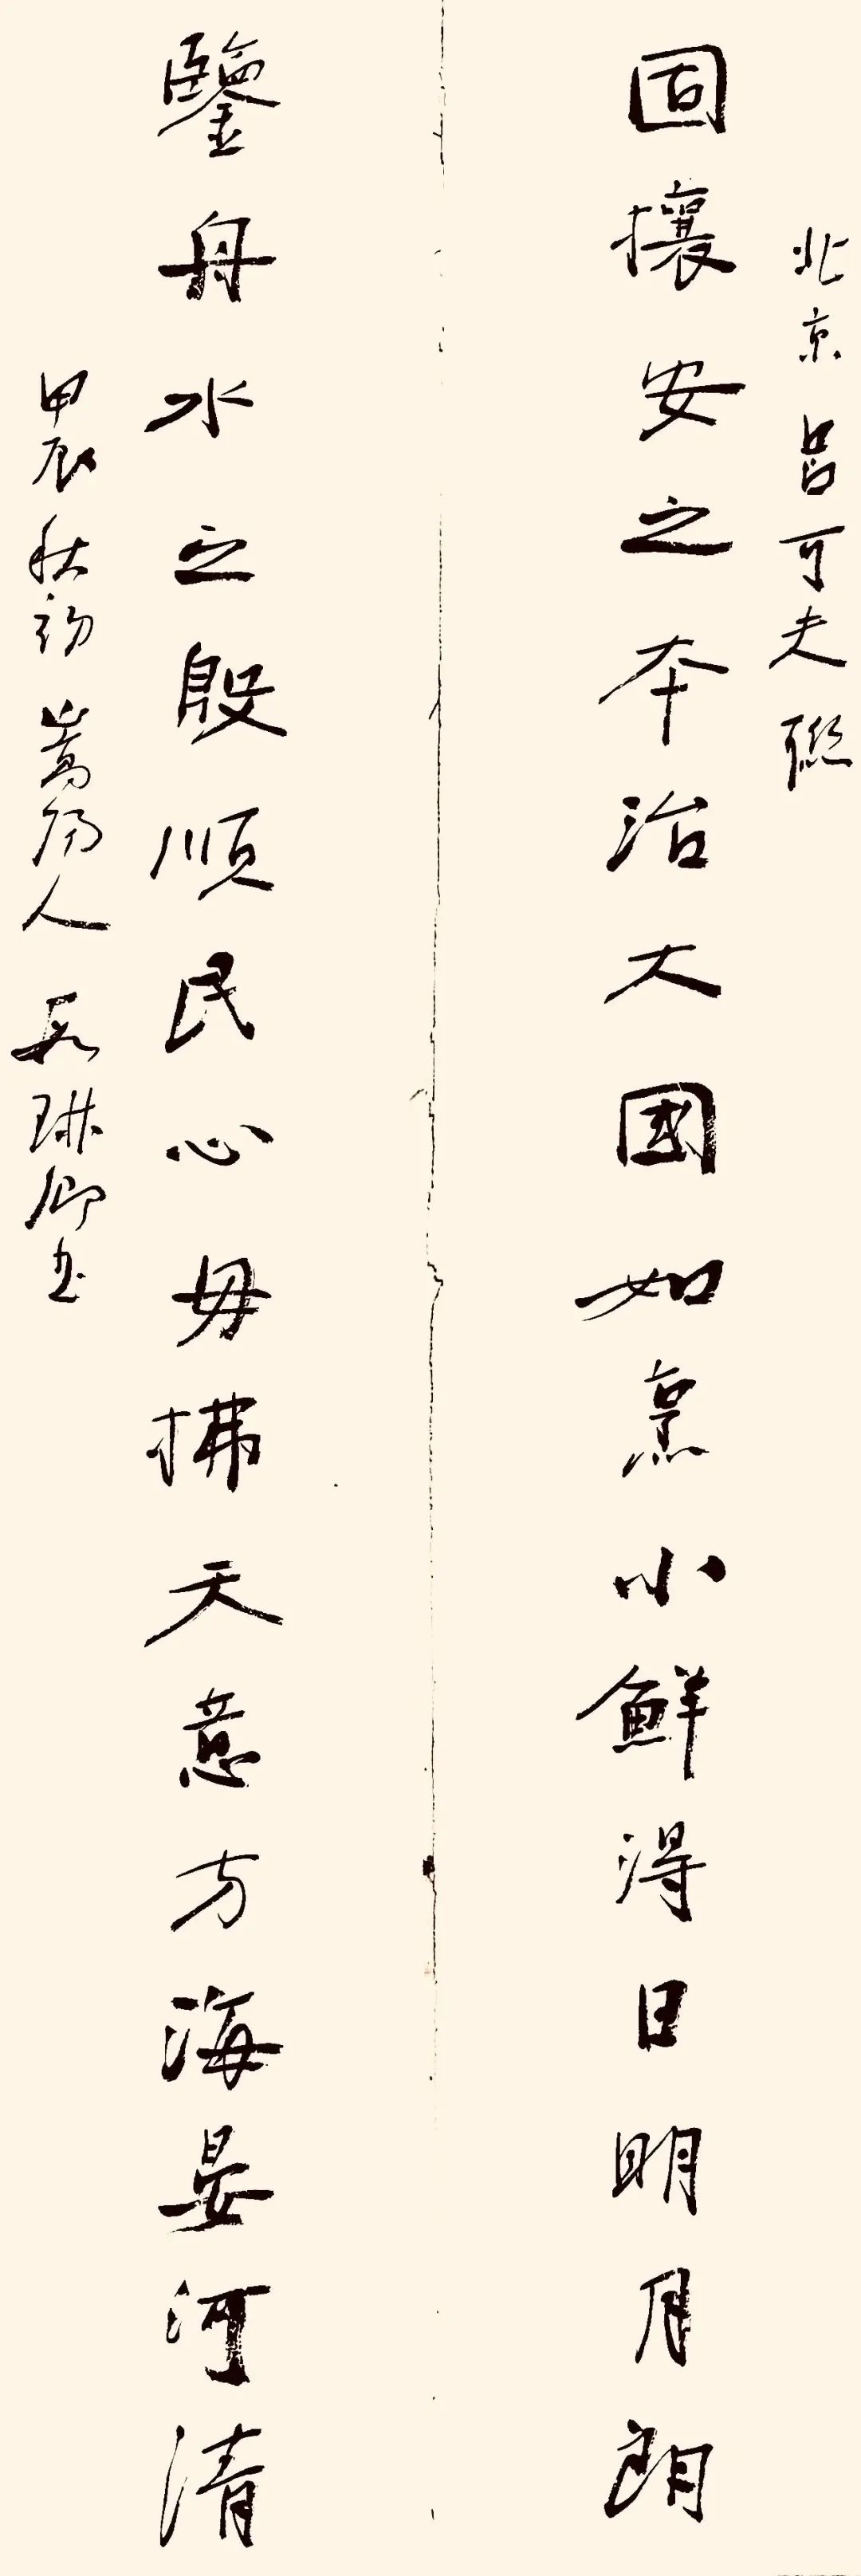 北京 呂可夫 聯
固攘安之本治大國如烹小鮮得日明月朗
鑒舟水之殷順民心毋拂天意方海晏河清
甲辰秋初 嵩陽人 琳卿书